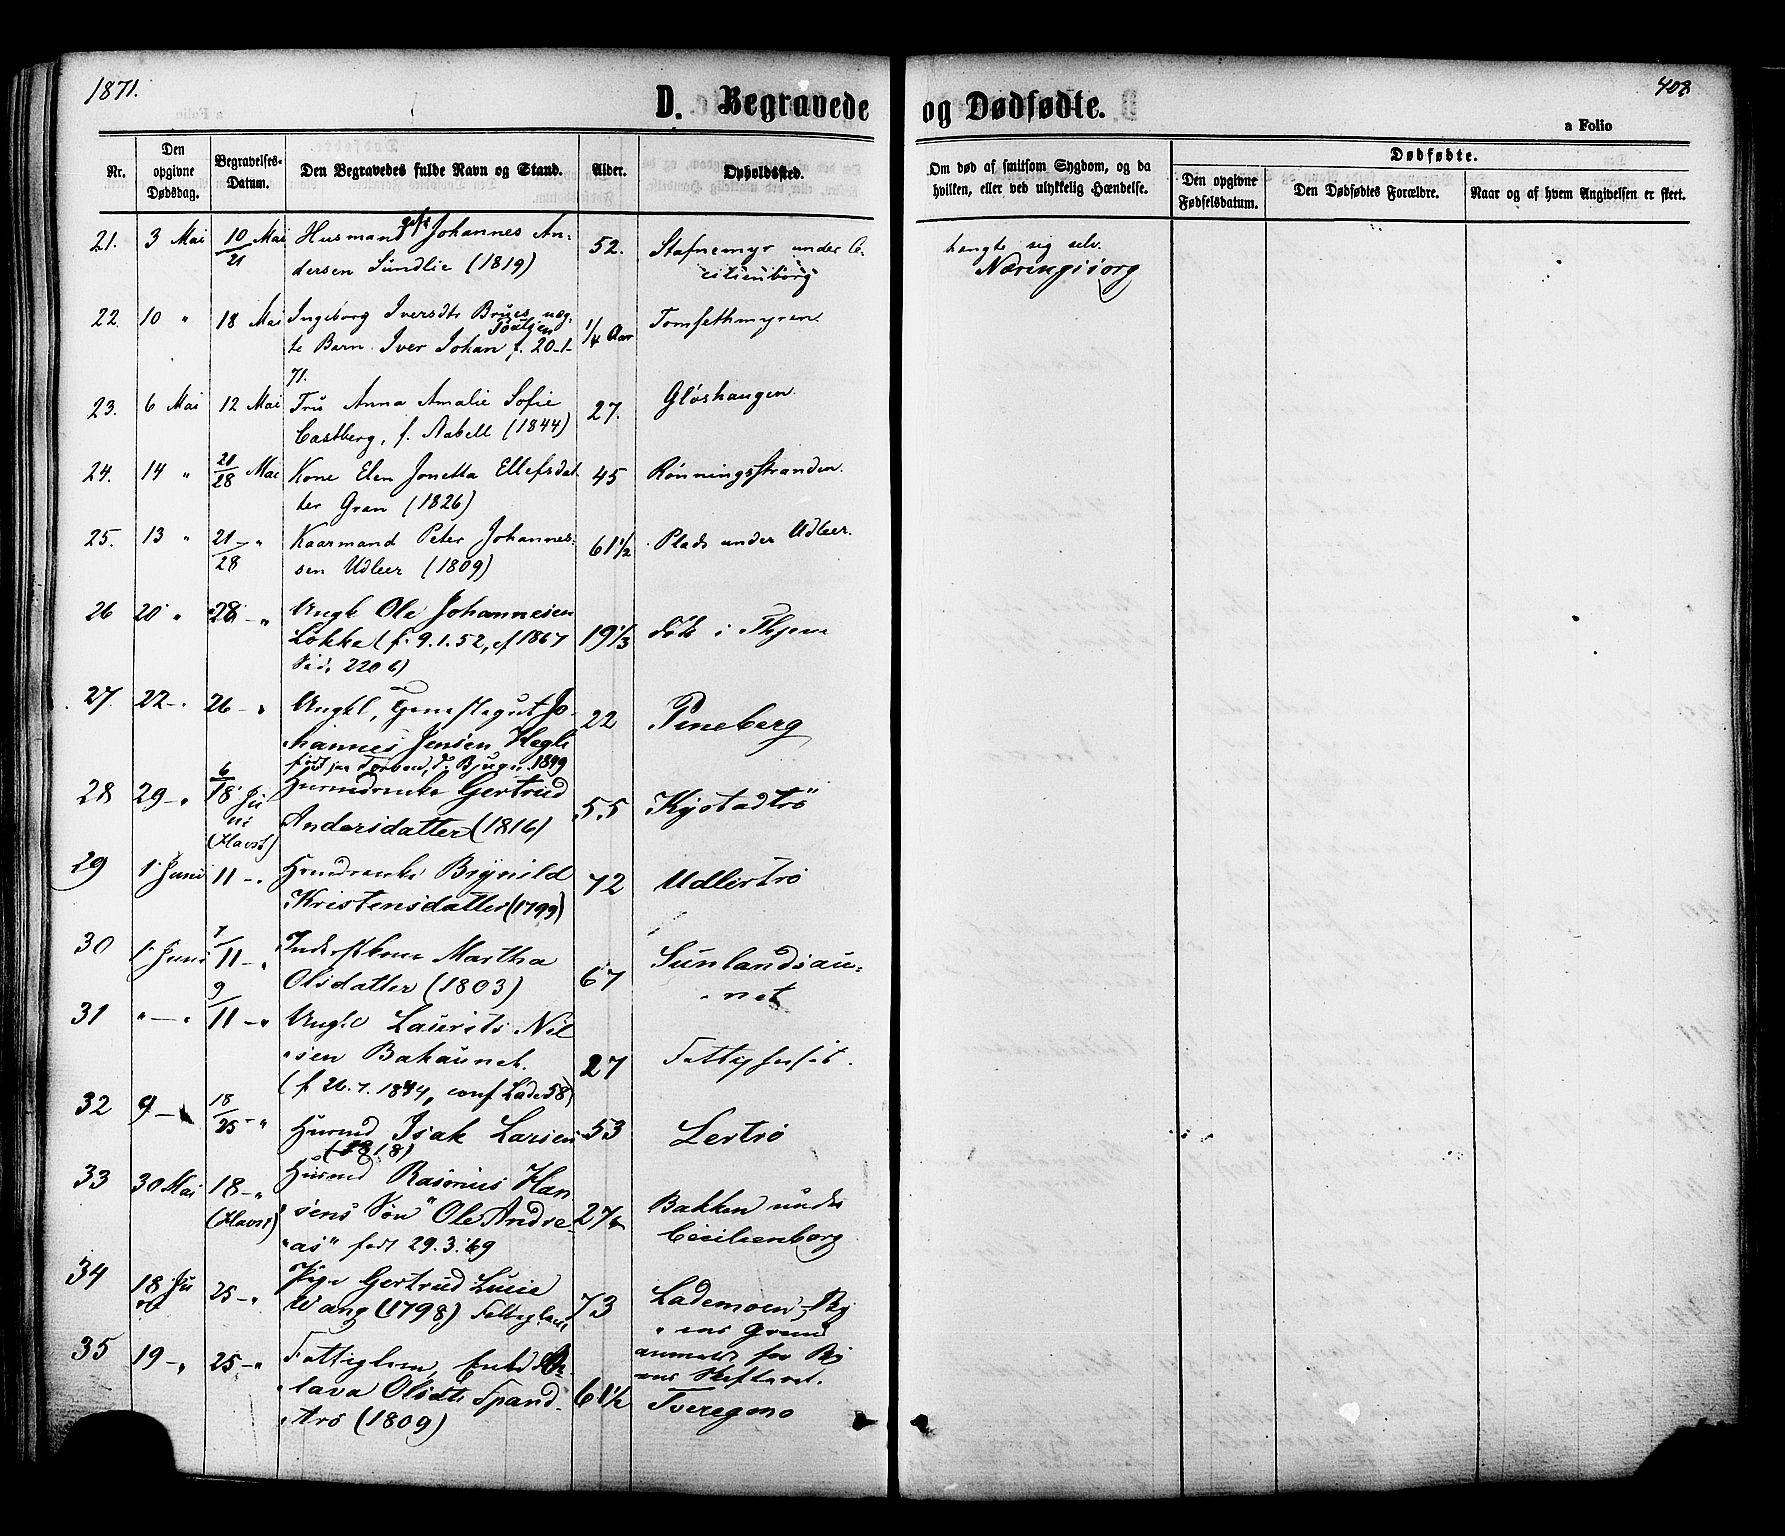 1871.
408
D. Begravede og Dødfødte.
a Folio
Nr.
Den opgivne Dødsdag.
Begravelses-Datum.
Den Begravedes fulde Navn og Stand.
Alder.
Opholdssted.
Om død af smitsom Sygdom, og da hvilken, eller ved ulykkelig Hændelse.
Dødfødte.
Den opgivne Fødselsdatum.
Den Dødfødtes Forældre.
Naar og af hvem Angivelsen er skeet.
21. 3 Mai 10/21 Mai Husmand gift Johannes An- 52. Stafnemyr under Ce- hengte sig selv.
dersen Sundlie (1819) cilienborg Næringssorg
22. 10 " 18 Mai Ingeborg Iversdtr Brues uæg- 1/4 Aar Tomsethmyren
te Barn Iver Johan f. 20-1-
71.
23. 6 Mai 12 Mai Fru Anna Amalie Sofie 27. Gløshaugen
Castberg, f. Aabell (1844)
24. 14 " 21/28 Mai Kone Elen Jonetta Ellefsdat- 45 Rønningsstranden.
ter Gran (1826)
25. 13 " 21/28 - " Kaarmand Peter Johannes- 61 1/2 Plads under Udleer.
sen Udleer (1809)
26 20 " 28 - " Ungk Ole Johannesen 19 1/3
Løkke (f. 9.1.52, cf 1867
220 6)
27. 22 - " 26 - " Ungkl, Jo- 22 Pineberg
hannes Jensen Hegle
Bjugn. 1849
28 29 - " 6/18 Juni Gertrud 55 Kystadtrø
(Havst) Andersdatter (1816)
29 1 Juni 11 - " Brynild 72 Udlertrø
Kristensdatter (1799)
30 1 Juni 7/11 - " Martha 67 Sunlandsau-
Olsdatter (1803) net
31 " - " 9/11 - " Ungk Laurits Nil- 27
sen Bakaunet.
(f. 26.7.1844, conf Lade 58)
32 9 - " 18/25 - " Husmd Isak Larsen 53 Lertrø
(1818)
33 30 Mai 18 - " Husmd Rasmus Han- 2 Bakken under
(Havst) sens Søn "Ole Andre- Cecilienborg
as" født 29.3.69
34 18 Ju 25 - " Pige Gertrud Lucie 73 Lademoen, By-
Wang (1798) Fattiglem ens Grund
35 19 - " 25 - " Fattiglem, Enke anmeldt fra By-
ens Skifteret.
Olsdtr Spand- 61 1/2 Tveregmo
(1809)